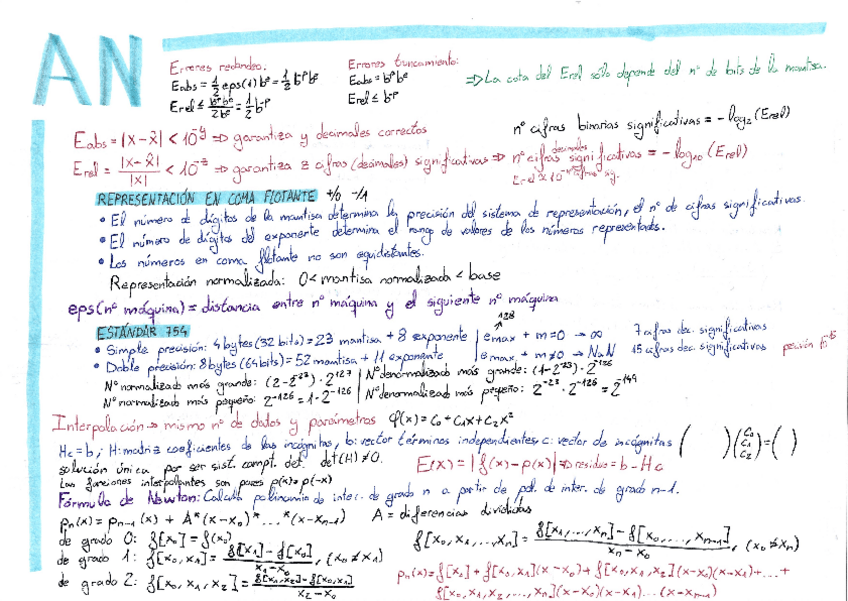 AN
Errores redondeo:
Eabs = 1/2 eps(1) b^e = 1/2 b^-p b^e
Erel ≤ (b^-p b^e)/(2b^e) = 1/2 b^-p
Errores truncamiento:
Eabs = b^-p b^e
Erel ≤ b^-p
⇒ La cota del Erel sólo depende del nº de bits de la mantisa.
Eabs = |x - x̂| < 10^-y ⇒ garantiza y decimales correctos
nº cifras binarias significativas = -log₂(Erel)
Erel = |x - x̂|/|x| < 10^-z ⇒ garantiza z cifras (decimales) significativas ⇒ nº cifras decimales significativas = -log₁₀(Erel)
REPRESENTACIÓN EN COMA FLOTANTE +/0 -/1
• El número de dígitos de la mantisa determina la precisión del sistema de representación, el nº de cifras significativas.
• El número de dígitos del exponente determina el rango de valores de los números representados.
• Los números en coma flotante no son equidistantes.
Representación normalizada: 0 < mantisa normalizada < base
eps(nº máquina) = distancia entre nº máquina y el siguiente nº máquina
ESTÁNDAR 754
128
• Simple precisión: 4 bytes (32 bits) = 23 mantisa + 8 exponente | emax + m=0 → ∞ 7 cifras dec. significativas
• Doble precisión: 8 bytes (64 bits) = 52 mantisa + 11 exponente | emax + m≠0 → NaN 15 cifras dec. significativas
Nº normalizado más grande: (2-2^-23)·2^127 | Nº denormalizado más grande: (1-2^-23)·2^-126
Nº normalizado más pequeño: 2^-126 = 1·2^-126 | Nº denormalizado más pequeño: 2^-23·2^-126 = 2^-149
Interpolación → mismo nº de datos y parámetros φ(x) = c₀ + c₁x + c₂x²
Hc = b; H: matriz coeficientes de las incógnitas, b: vector términos independientes, c: vector de incógnitas ( )(c₀ c₁ c₂) = ( )
solución única por ser sist. compt. det. det(H) ≠ 0.
E(x) = |f(x) - p(x)| ⇒ residuo = b - Hc
Las funciones interpolantes son pares p(x) = p(-x)
Fórmula de Newton: Calcula polinomio de inter. de grado n a partir de pol. de inter. de grado n-1.
pn(x) = pn-1(x) + A*(x-x₀)*...*(x-xn-1) A = diferencias divididas
de grado 0: f[x₀] = f(x₀)
f[x₀, x₁, ..., xn] = (f[x₁, ..., xn] - f[x₀, ..., xn-1])/(xn - x₀), (x₀ ≠ xn)
de grado 1: f[x₀, x₁] = (f[x₁] - f[x₀])/(x₁ - x₀), (x₀ ≠ x₁)
de grado 2: f[x₀, x₁, x₂] = (f[x₁, x₂] - f[x₀, x₁])/(x₂ - x₀)
pn(x) = f[x₀] + f[x₀, x₁](x-x₀) + f[x₀, x₁, x₂](x-x₀)(x-x₁) + ... +
f[x₀, x₁, x₂, ..., xn](x-x₀)(x-x₁)...(x-xn-1)